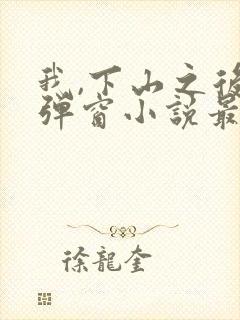 我,下山之後
彈窗小說最
徐龍奎